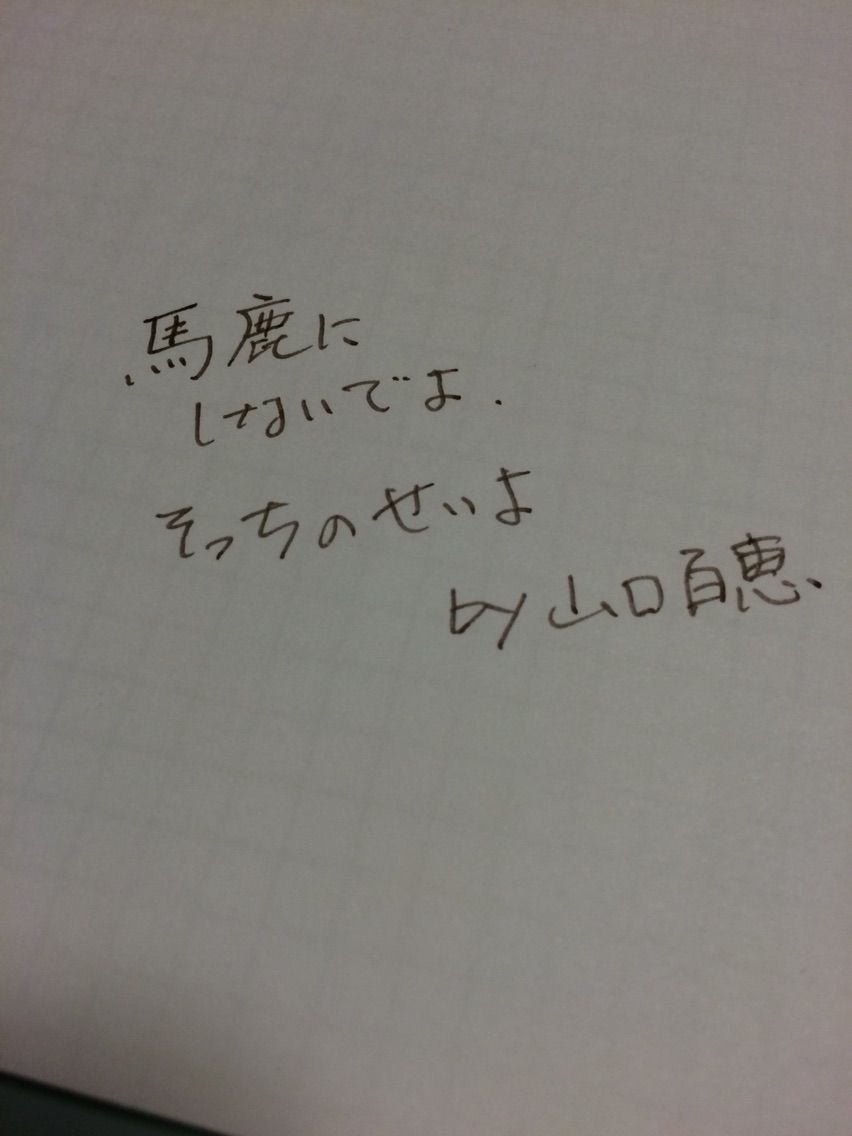 馬鹿に
しないでよ.
そっちのせいよ
by 山口百恵.